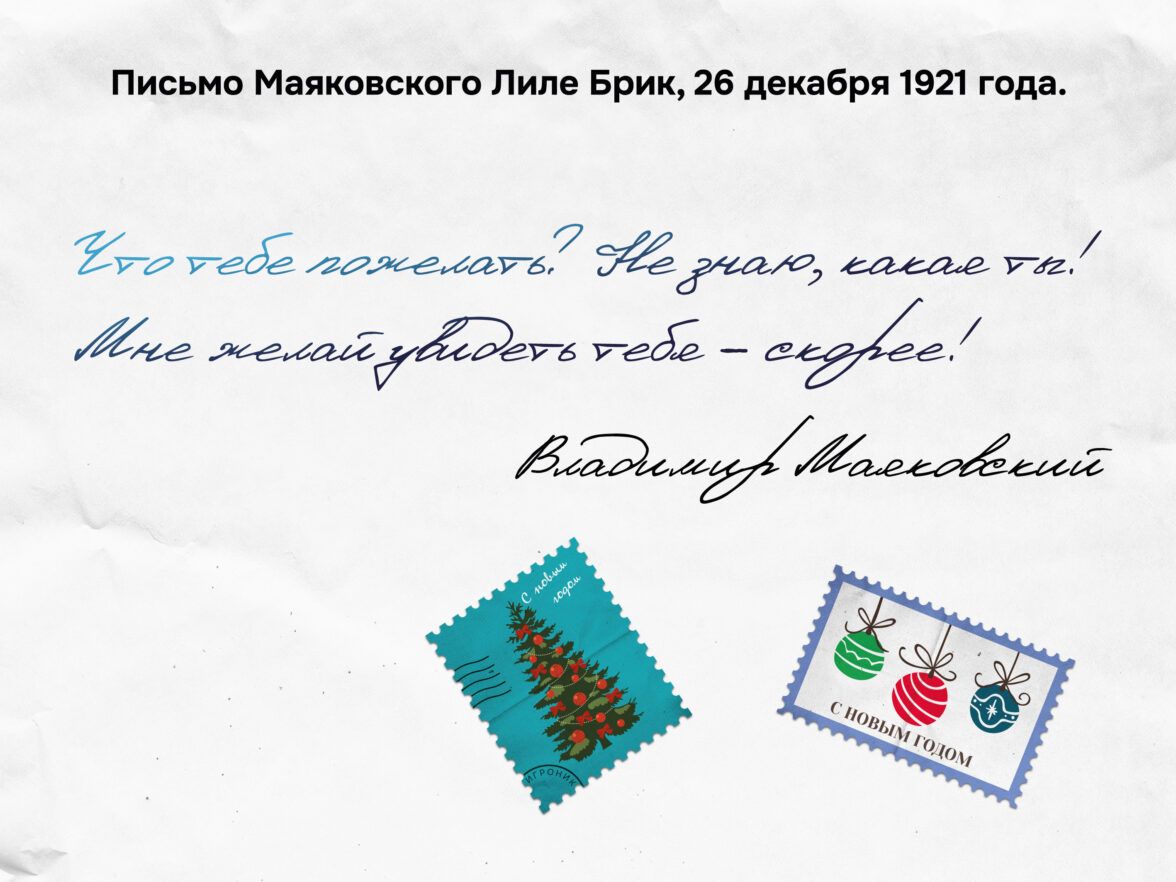 Письмо Маяковского Лиле Брик, 26 декабря 1921 года.
Что тебе пожелать? Не знаю, какая ты!
Мне желай увидеть тебя – скорее!
Владимир Маяковский
С новым
годом
ИГРОНИК
С НОВЫМ ГОДОМ